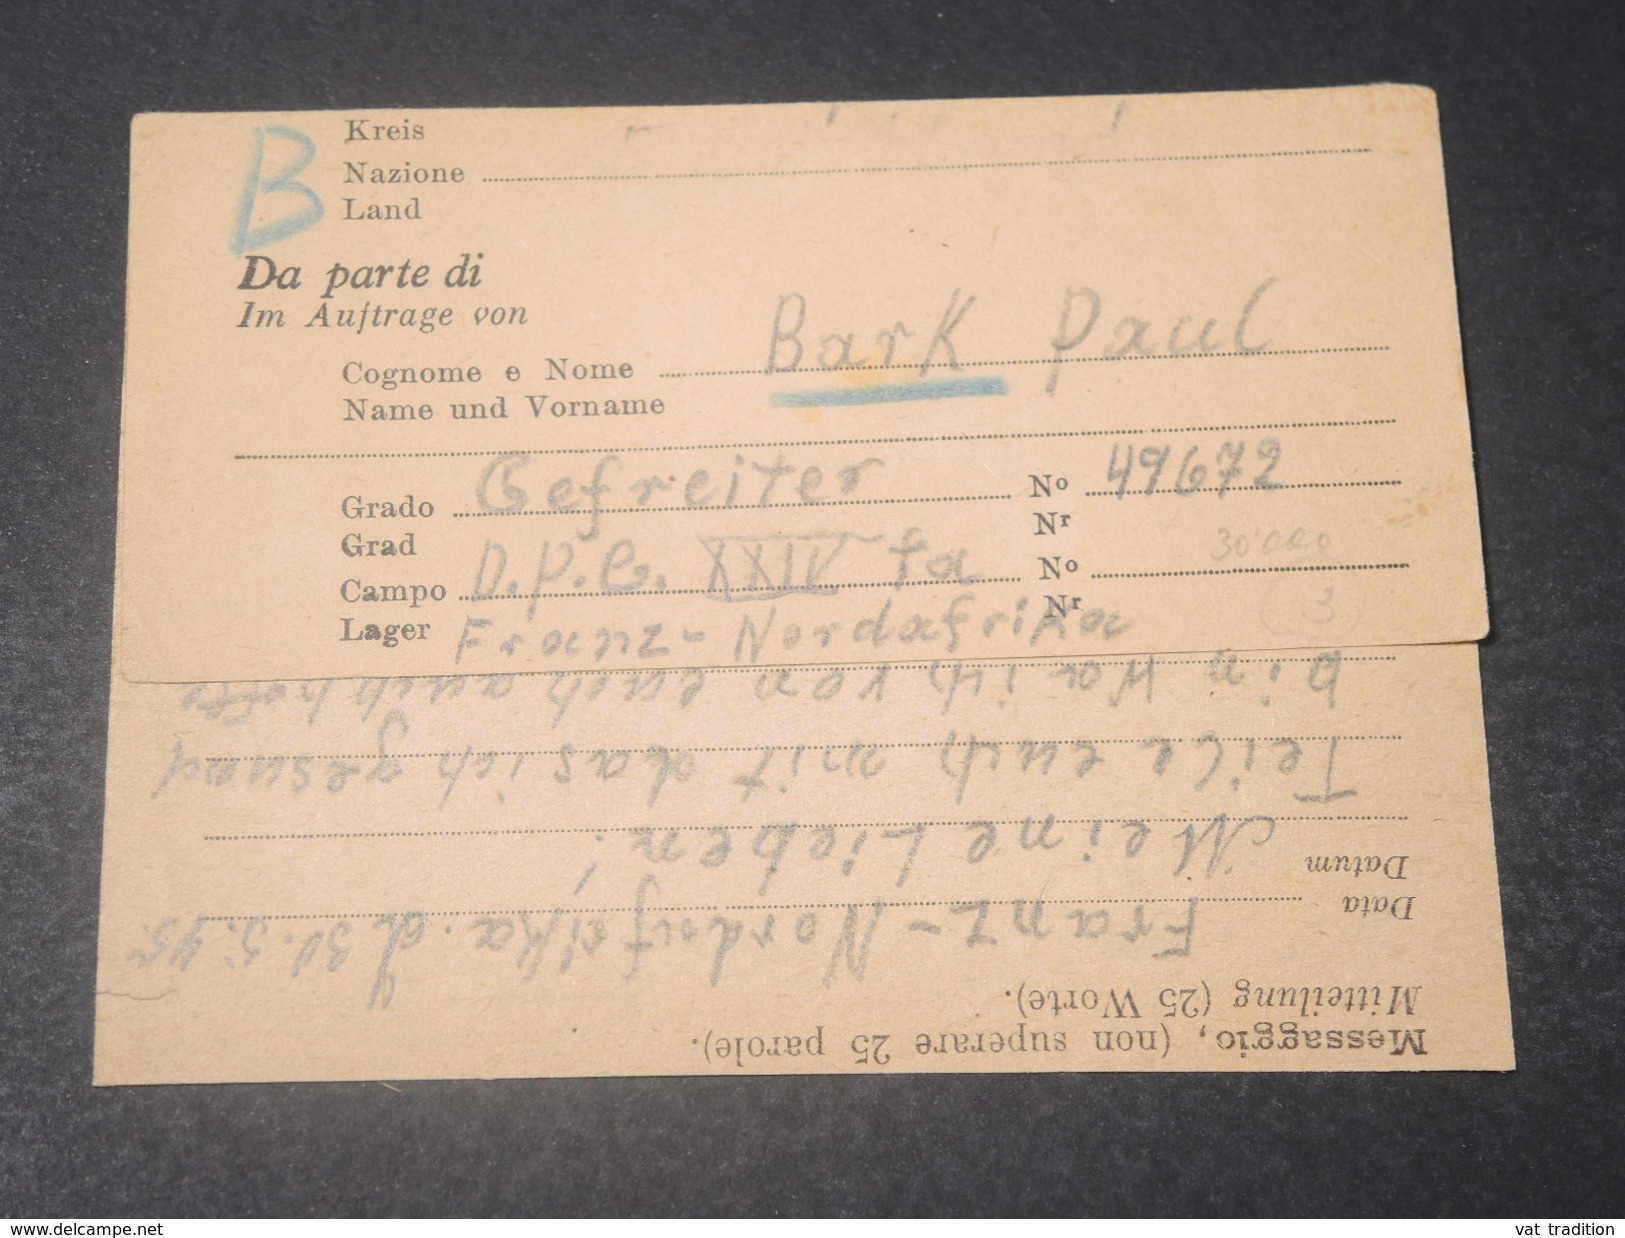 B
Kreis
Nazione
Land
Da parte di
Im Auftrage von
Cognome e Nome Bark Paul
Name und Vorname
Grado Gefreiter No 49672
Grad Nr
30'000
Campo D.P.G. XXIV fa No
Lager Franz-Nordafrika Nr
3
Messaggio, (non superare 25 parole).
Mitteilung (25 Worte).
Data Franz-Nordafrika. d 30.5.45.
Datum
Meine Lieben!
Teile euch mit das ich gesund
bin was ich von euch auch hoffe
www.delcampe.net
vat tradition